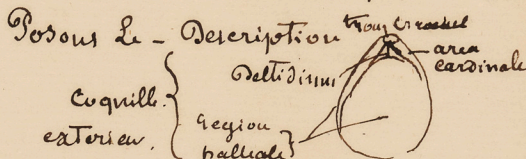 Posons Le - Description
trou
area
cardinale
Deltidium
Coquille
exterieu.
region
palleale